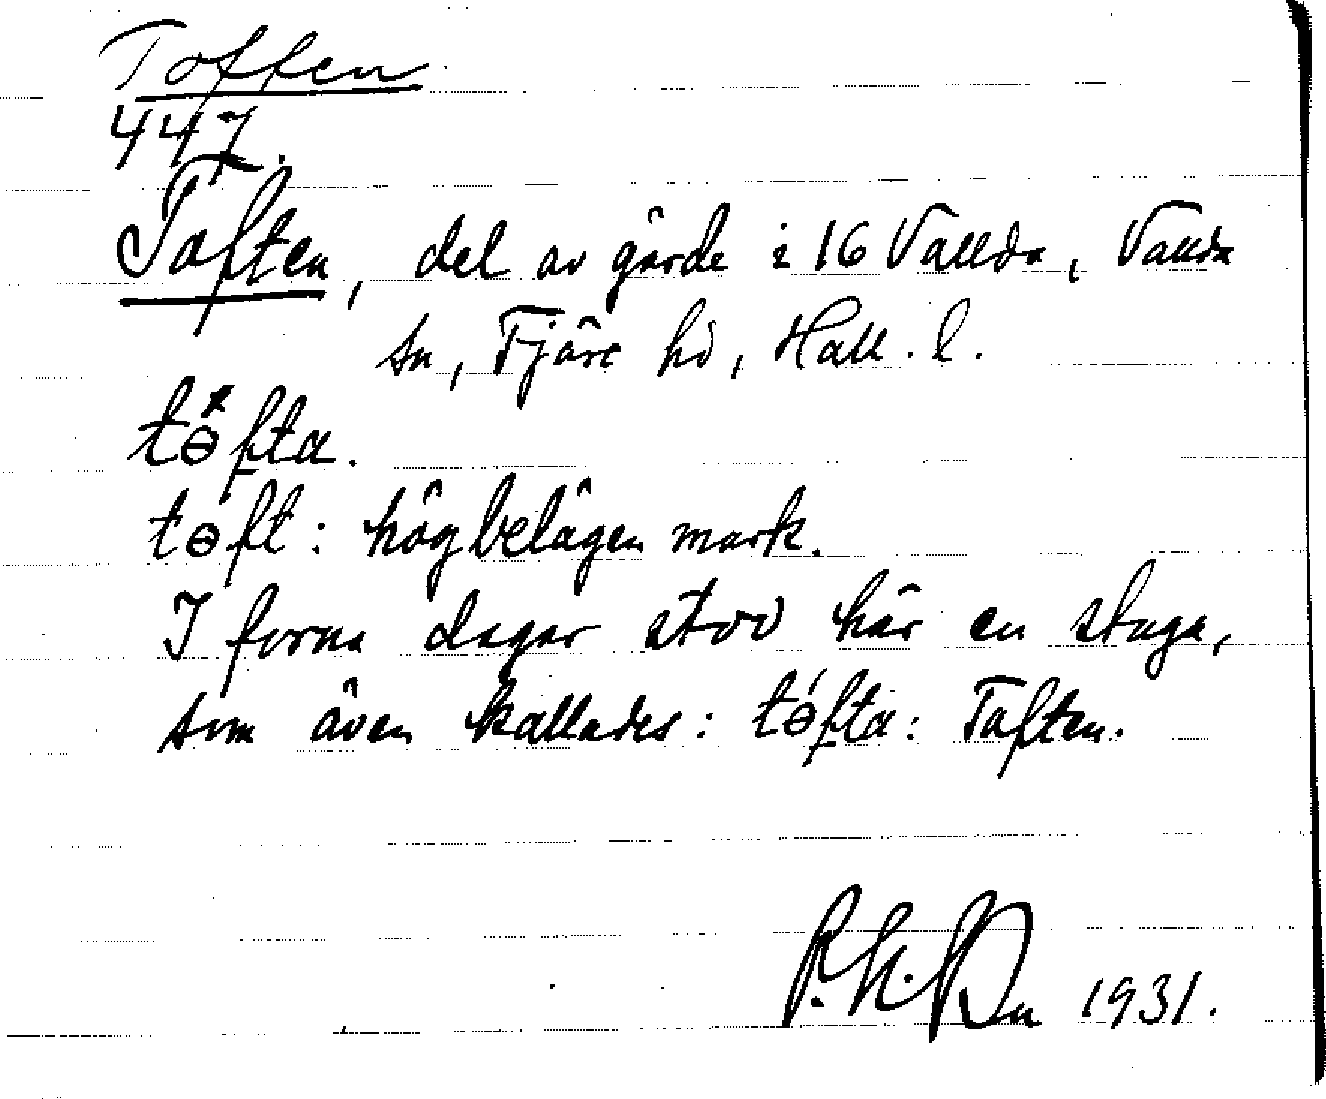 Toften
447.
Toften, del av gärde i 16 Vallda, Vallda
sn, Fjäre hd, Hall. l.
tɵ̀fta.
tɵft: högbelägen mark.
I forna dagar stod här en stuga,
som även kallades: tɵ́fta: Toften.
1931.